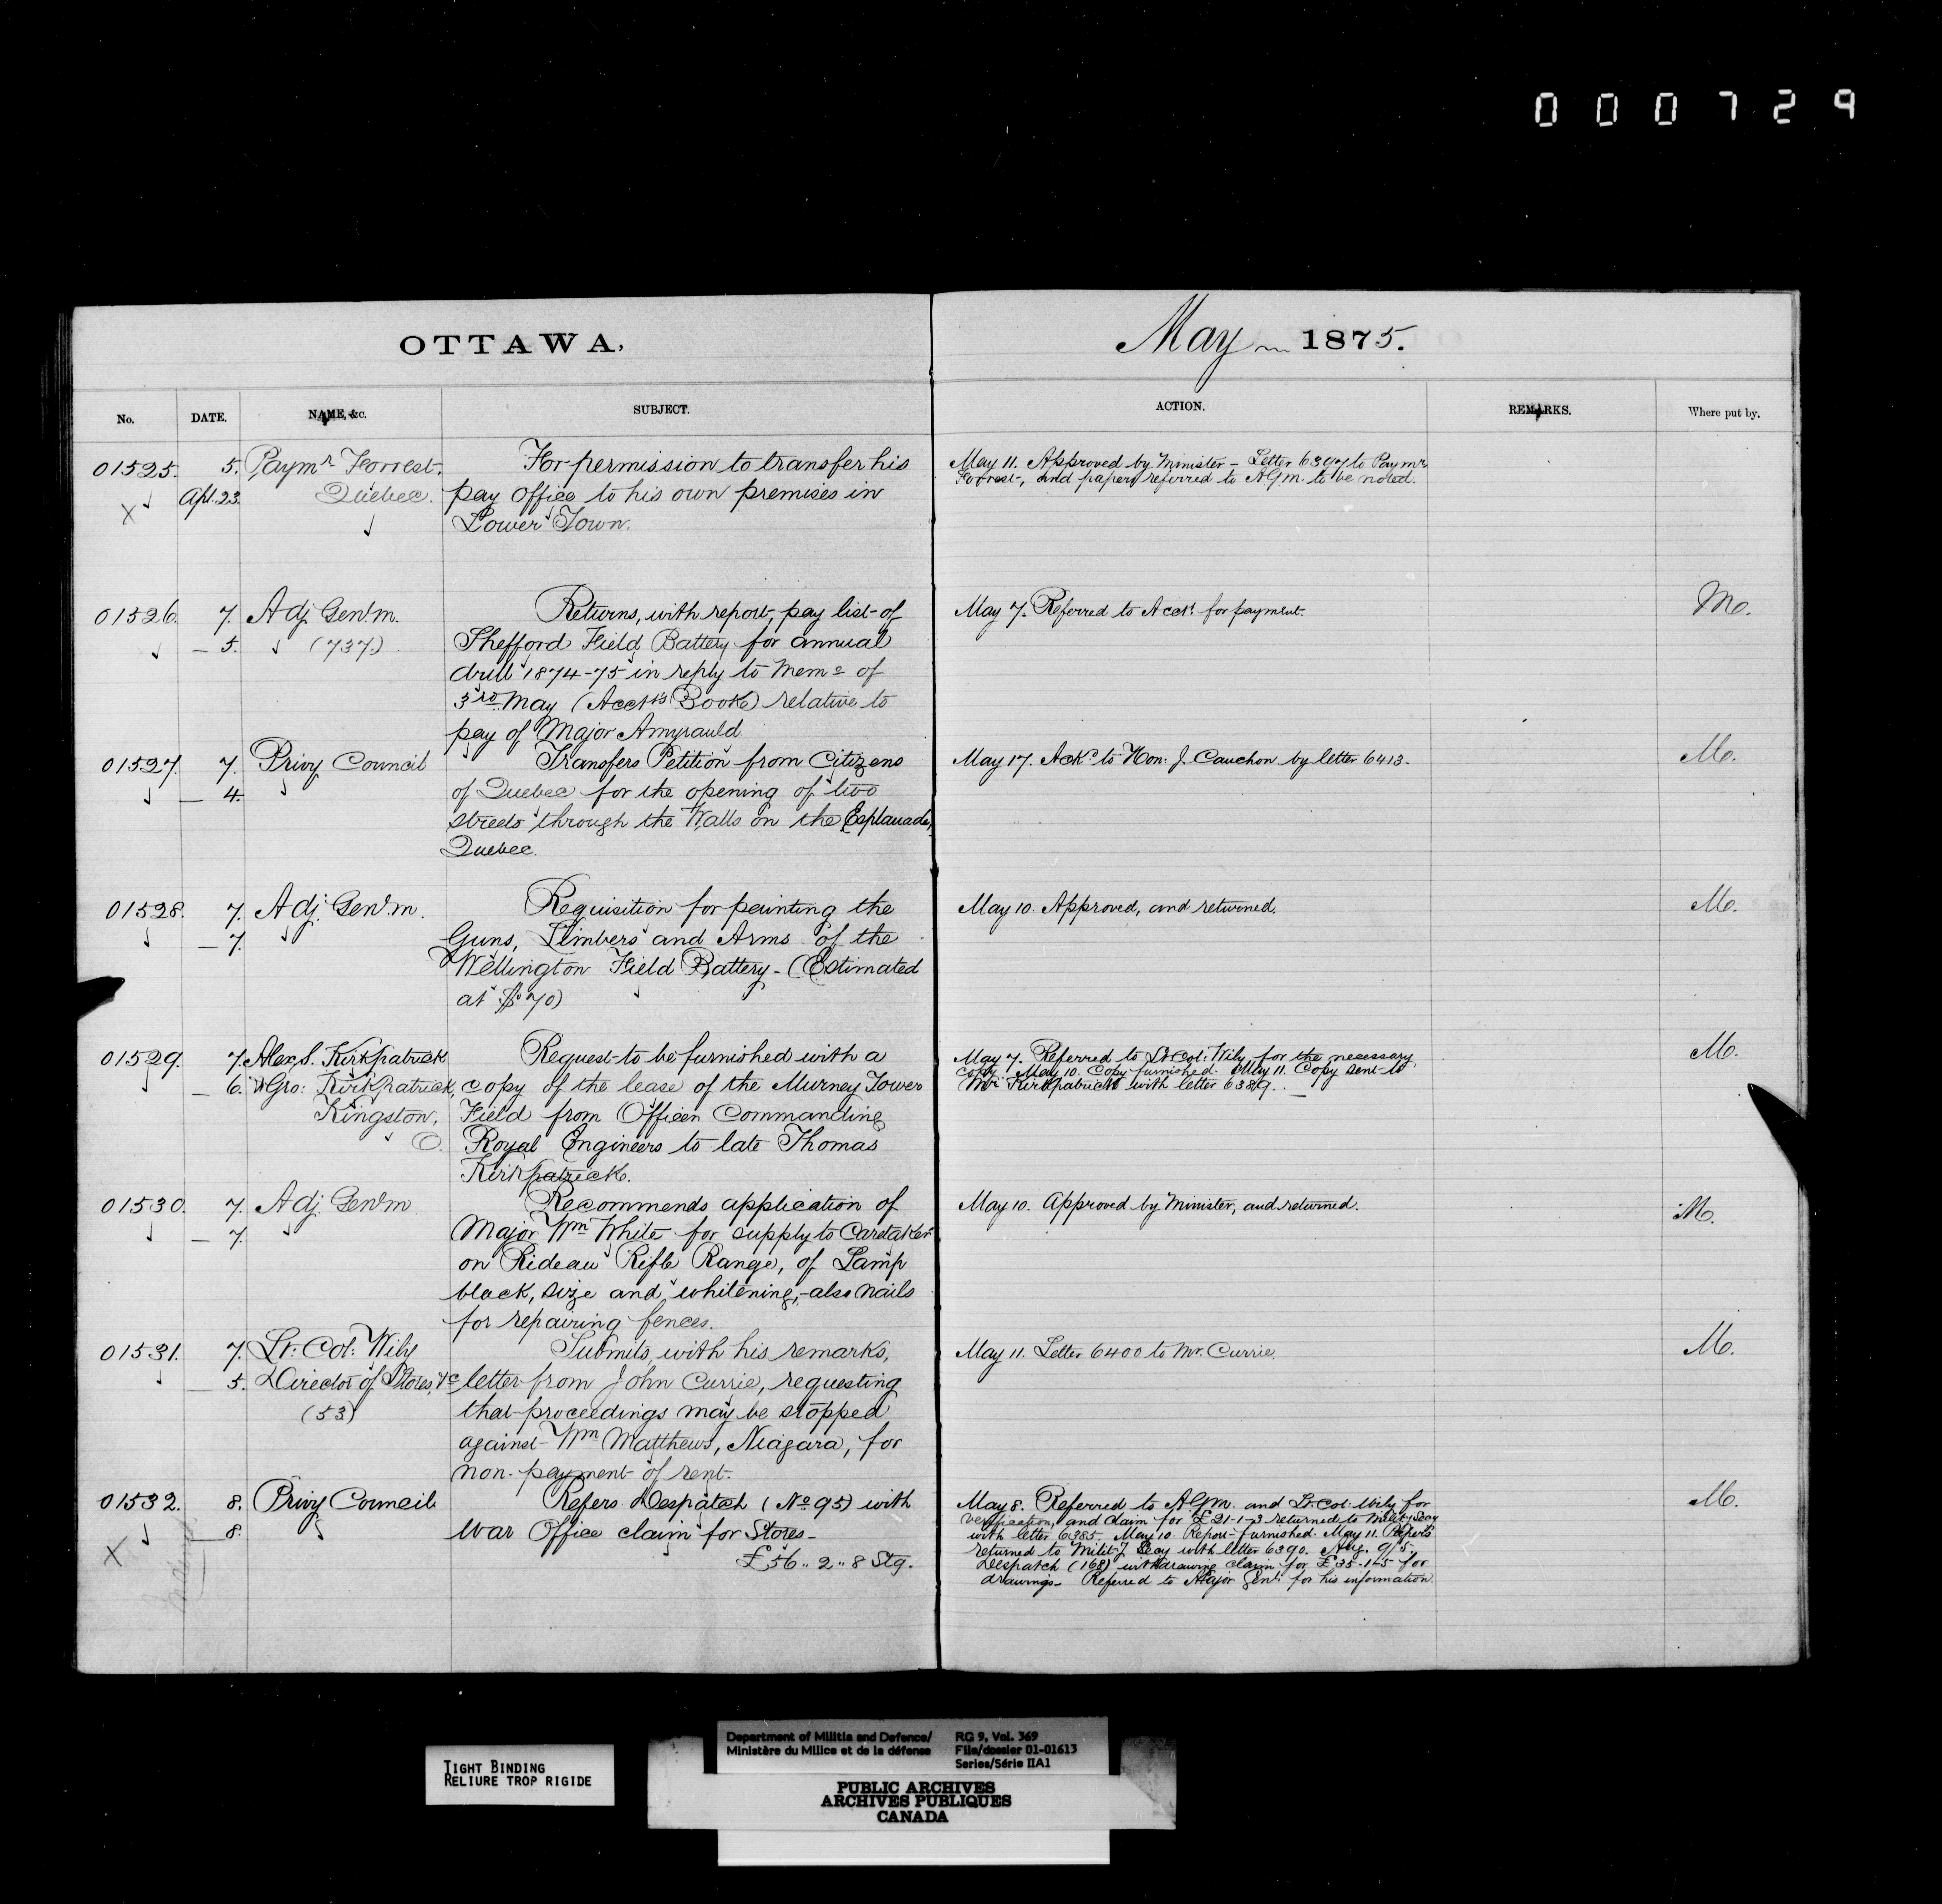 000729
OTTAWA,
May 1875.
No. DATE. NAME, &c. SUBJECT. ACTION. REMARKS. Where put by.
01525. 5. Paymr Forrest. For permission to transfer his
Apl. 23. Quebec. pay office to his own premises in
X Lower Town.
May 11. Approved by Minister - Letter 6397 to Paymr
Forrest, and papers referred to AGm. to be noted.
01526. 7. Adj. Genl. m. Returns, with report, pay list of
— 5. (737.) Shefford Field Battery for annual
drill 1874-75 in reply to Memo of
3rd May (Acct's Book) relative to
pay of Major Amyrauld.
May 7. Referred to Acct. for payment.
Mo.
01527. 7. Privy Council Transfers Petition from Citizens
— 4. of Quebec for the opening of two
streets through the Walls on the Esplanade,
Quebec.
May 17. Ackd. to Hon: J. Cauchon by letter 6413.
Mo.
01528. 7. Adj. Genl. m. Requisition for painting the
— 7. Guns, Limbers and Arms of the
Wellington Field Battery - (Estimated
at $70)
May 10. Approved, and returned.
Mo.
01529. 7. Alex. S. Kirkpatrick Request to be furnished with a
— 6. Geo: Kirkpatrick, copy of the lease of the Murney Tower
Kingston, Field from Officer Commanding
O. Royal Engineers to late Thomas
Kirkpatrick.
May 7. Referred to Lt. Col: Wily for the necessary
copy. May 10. Copy furnished. May 11. Copy sent to
Mr Kirkpatrick with letter 6389.
Mo.
01530. 7. Adj. Genl. m Recommends application of
— 7. Major Wm White for supply to Caretaker
on Rideau Rifle Range, of Lamp
black, size and whitening, - also nails
for repairing fences.
May 10. Approved by Minister, and returned.
M.
01531. 7. Lt. Col: Wily Submits, with his remarks,
— 5. Director of Stores, &c letter from John Currie, requesting
(53) that proceedings may be stopped
against Wm Matthews, Niagara, for
non-payment of rent.
May 11. Letter 6400 to Mr. Currie.
Mo.
01532. 8. Privy Council Refers Despatch (No 95) with
— 8. War Office claim for Stores -
X £56..2..8 Stg.
May 8. Referred to AGm. and Lt. Col: Wily for
verification, and claim for £21-1-3 returned to Milit'y Secy
with letter 6385. May 10. Report furnished. May 11. Reports
returned to Milit'y Secy with letter 6390. Aug. 9/5.
Despatch (168) withdrawing claim for £35-1-5 for
drawings - Referred to Major Genl. for his information.
Mo.
TIGHT BINDING
RELIURE TROP RIGIDE
Department of Militia and Defence/ RG 9, Vol. 369
Ministère du Milice et de la défense File/dossier 01-01613
Series/Série IIA1
PUBLIC ARCHIVES
ARCHIVES PUBLIQUES
CANADA